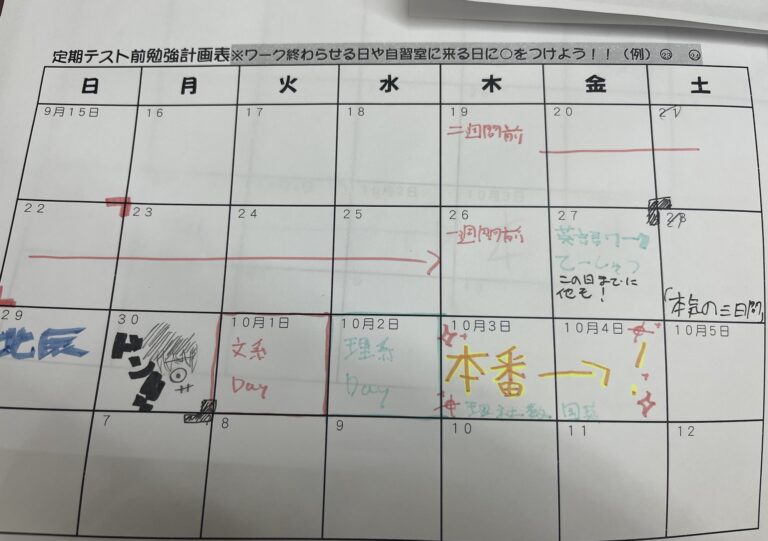 定期テスト前勉強計画表※ワーク終わらせる日や自習室に来る日に○をつけよう！！（例）㉓ ㉔
日 月 火 水 木 金 土
9月15日 16 17 18 19 20 21
二週間前
22 23 24 25 26 27 28
一週間前 英語ワーク
てーしゅつ
この日までに
他も！
「本気の三日間」
29 30 10月1日 10月2日 10月3日 10月4日 10月5日
北辰 ドン!! 文系 理系 本番→！
Day Day
理社数 国英
7 8 9 10 11 12